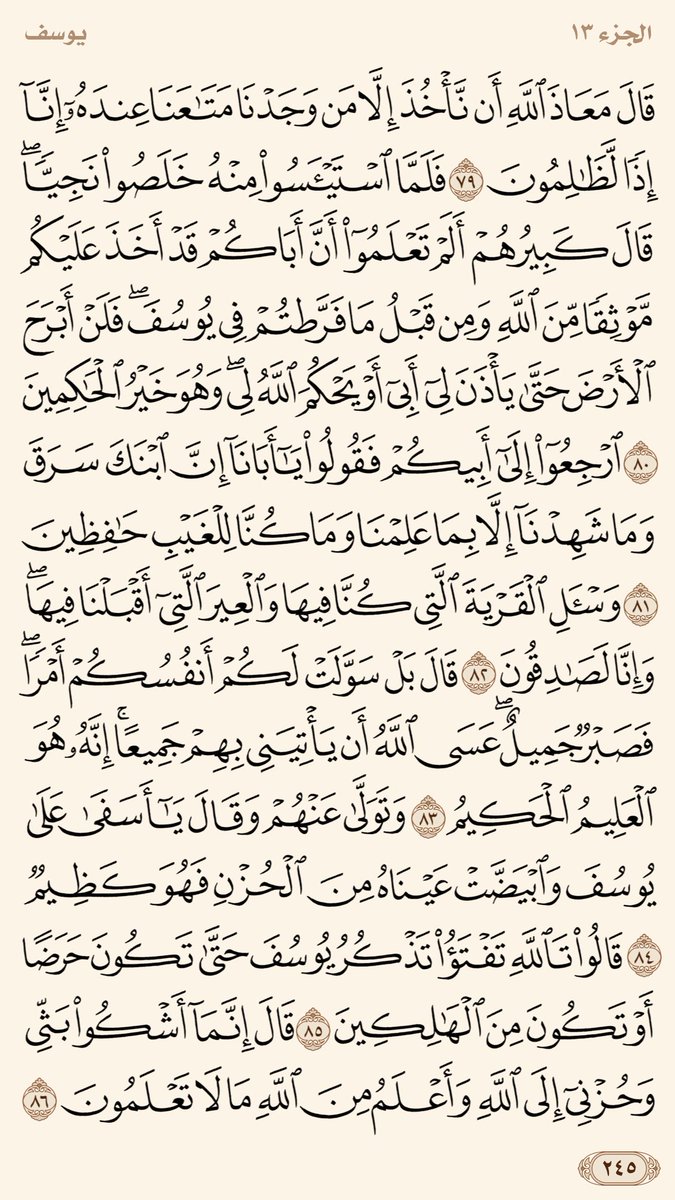 الجزء ١٣
يوسف
قَالَ مَعَاذَ ٱللَّهِ أَن نَّأۡخُذَ إِلَّا مَن وَجَدۡنَا مَتَٰعَنَا عِندَهُۥٓ إِنَّآ
إِذٗا لَّظَٰلِمُونَ ٧٩ فَلَمَّا ٱسۡتَيۡـَٔسُواْ مِنۡهُ خَلَصُواْ نَجِيّٗاۖ
قَالَ كَبِيرُهُمۡ أَلَمۡ تَعۡلَمُوٓاْ أَنَّ أَبَاكُمۡ قَدۡ أَخَذَ عَلَيۡكُم
مَّوۡثِقٗا مِّنَ ٱللَّهِ وَمِن قَبۡلُ مَا فَرَّطتُمۡ فِي يُوسُفَۖ فَلَنۡ أَبۡرَحَ
ٱلۡأَرۡضَ حَتَّىٰ يَأۡذَنَ لِيٓ أَبِيٓ أَوۡ يَحۡكُمَ ٱللَّهُ لِيۖ وَهُوَ خَيۡرُ ٱلۡحَٰكِمِينَ
٨٠ ٱرۡجِعُوٓاْ إِلَىٰٓ أَبِيكُمۡ فَقُولُواْ يَٰٓأَبَانَآ إِنَّ ٱبۡنَكَ سَرَقَ
وَمَا شَهِدۡنَآ إِلَّا بِمَا عَلِمۡنَا وَمَا كُنَّا لِلۡغَيۡبِ حَٰفِظِينَ
٨١ وَسۡـَٔلِ ٱلۡقَرۡيَةَ ٱلَّتِي كُنَّا فِيهَا وَٱلۡعِيرَ ٱلَّتِيٓ أَقۡبَلۡنَا فِيهَاۖ
وَإِنَّا لَصَٰدِقُونَ ٨٢ قَالَ بَلۡ سَوَّلَتۡ لَكُمۡ أَنفُسُكُمۡ أَمۡرٗاۖ
فَصَبۡرٞ جَمِيلٌۖ عَسَى ٱللَّهُ أَن يَأۡتِيَنِي بِهِمۡ جَمِيعًاۚ إِنَّهُۥ هُوَ
ٱلۡعَلِيمُ ٱلۡحَكِيمُ ٨٣ وَتَوَلَّىٰ عَنۡهُمۡ وَقَالَ يَٰٓأَسَفَىٰ عَلَىٰ
يُوسُفَ وَٱبۡيَضَّتۡ عَيۡنَاهُ مِنَ ٱلۡحُزۡنِ فَهُوَ كَظِيمٞ
٨٤ قَالُواْ تَٱللَّهِ تَفۡتَؤُاْ تَذۡكُرُ يُوسُفَ حَتَّىٰ تَكُونَ حَرَضًا
أَوۡ تَكُونَ مِنَ ٱلۡهَٰلِكِينَ ٨٥ قَالَ إِنَّمَآ أَشۡكُواْ بَثِّي
وَحُزۡنِيٓ إِلَى ٱللَّهِ وَأَعۡلَمُ مِنَ ٱللَّهِ مَا لَا تَعۡلَمُونَ ٨٦
٢٤٥